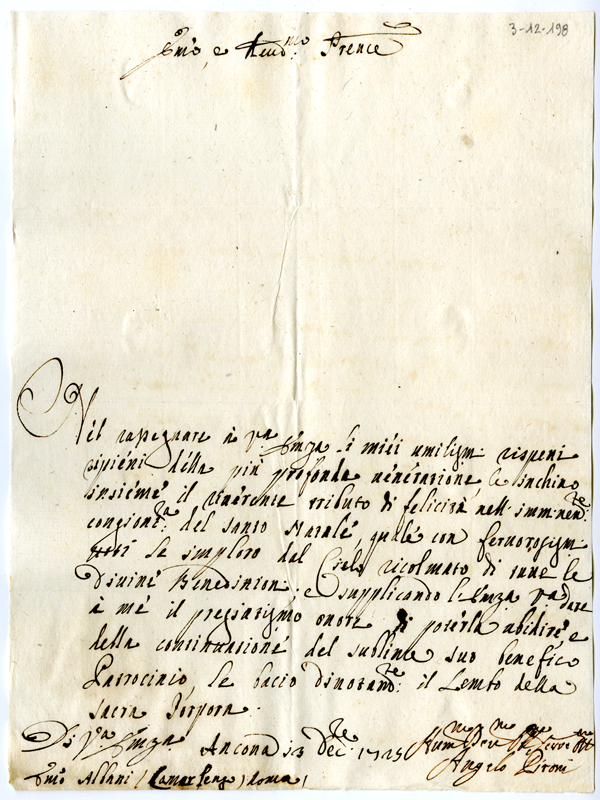 3-12-198
Em̃o, e Reud.mo Prence
Nel rassegnare à V.ra Emza li miei umilissm. rispetti
ripieni della più profonda venerazione le inchino
insieme il riverente tributo di felicità nell' imminen.te
congiont.ra del Santo Natale, quale con fervorosissm.
le imploro dal Cielo ricolmato di tutte le
Divine Benedizioni; e supplicando l'Emza V.ra dare
à me il pregiatissmo onore di poterla ubidire e
della continuazione del sublime suo benefico
Patrocinio le bacio divotam.te il Lembo della
Sacra Porpora.
Di V.ra Emza Ancona 13 Dec.re 1725 Hum.mo Dev.mo Servre
Em̃o Albani (Camarlengo) Roma / Angelo Pironi